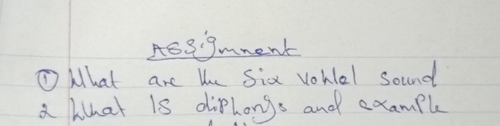 Assignment
① What are the Six vowel sound
2 What is diphongs and example